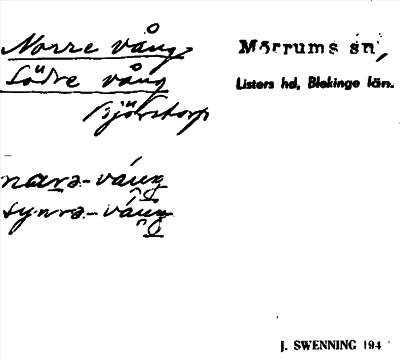 Norre vång
Södre vång
Björstorp
Mörrums sn,
Listers hd, Blekinge län.
nara-váng
synra-váng
J. SWENNING 194